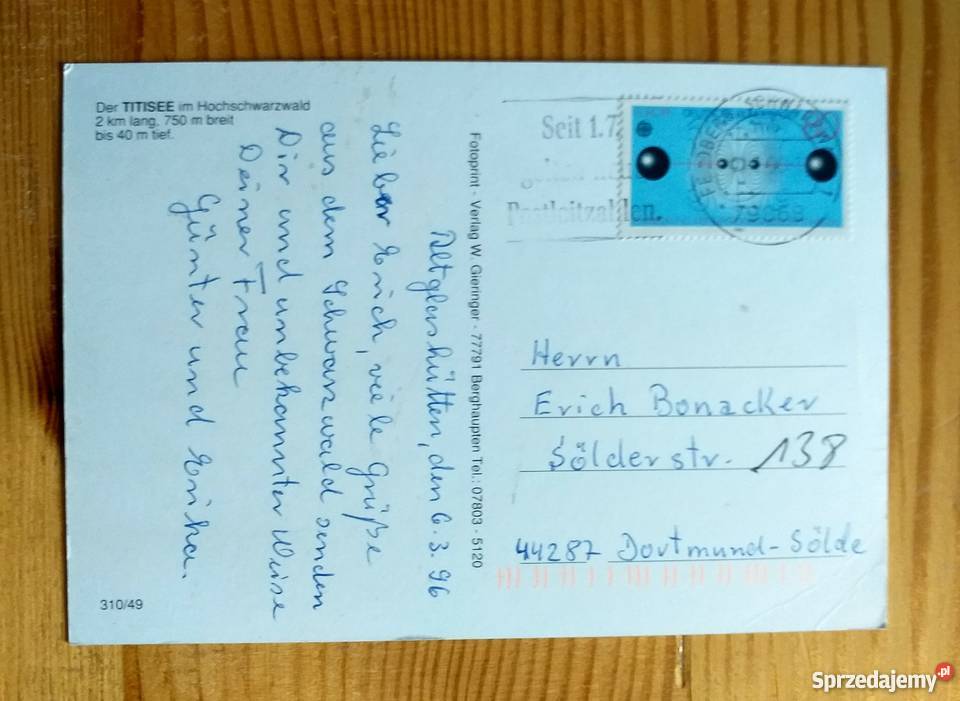 Der TITISEE im Hochschwarzwald
2 km lang, 750 m breit
bis 40 m tief.
Altglashütten, den 6.3.96
Lieber Erich, viele Grüße
aus dem Schwarzwald senden
Dir und unbekannter Weise
Deiner Frau
Günter und Erika.
310/49
Fotoprint - Verlag W. Gieringer - 77791 Berghaupten Tel.: 07803 - 5120
Seit 1.7.
Postleitzahlen.
79868
Herrn
Erich Bonacker
Sölderstr. 138
44287 Dortmund-Sölde
Sprzedajemy.pl